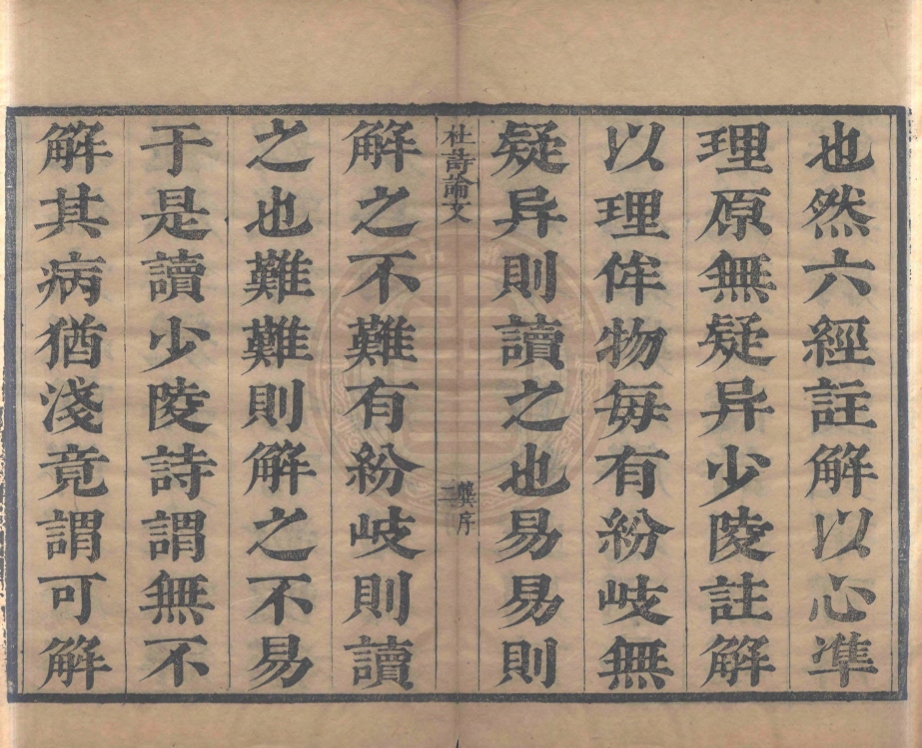 也然六經註解以心準
理原無疑异少陵註解
以理侔物每有紛岐無
疑异則讀之也易易則
杜詩論文
龔序
二
解之不難有紛岐則讀
之也難難則解之不易
于是讀少陵詩謂無不
解其病猶淺竟謂可解